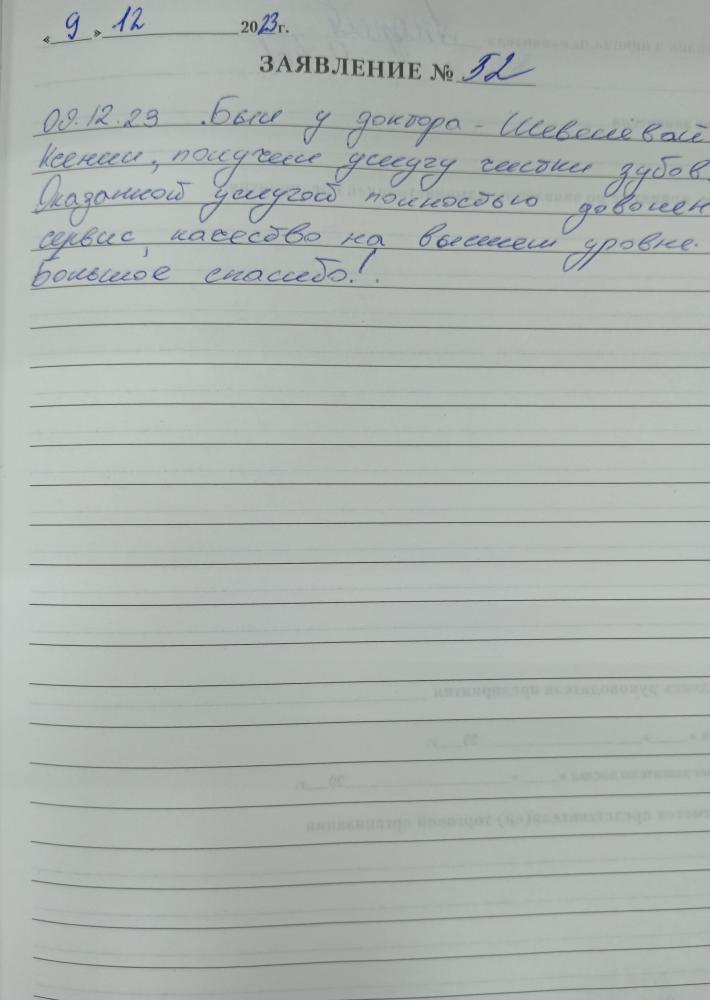 « 9 » 12 2023г.
ЗАЯВЛЕНИЕ № 52
09.12.23 Был у доктора - Шевелевой
Ксении, получил услугу чистки зубов.
Оказанной услугой полностью доволен
сервис, качество на высшем уровне.
Большое спасибо!.